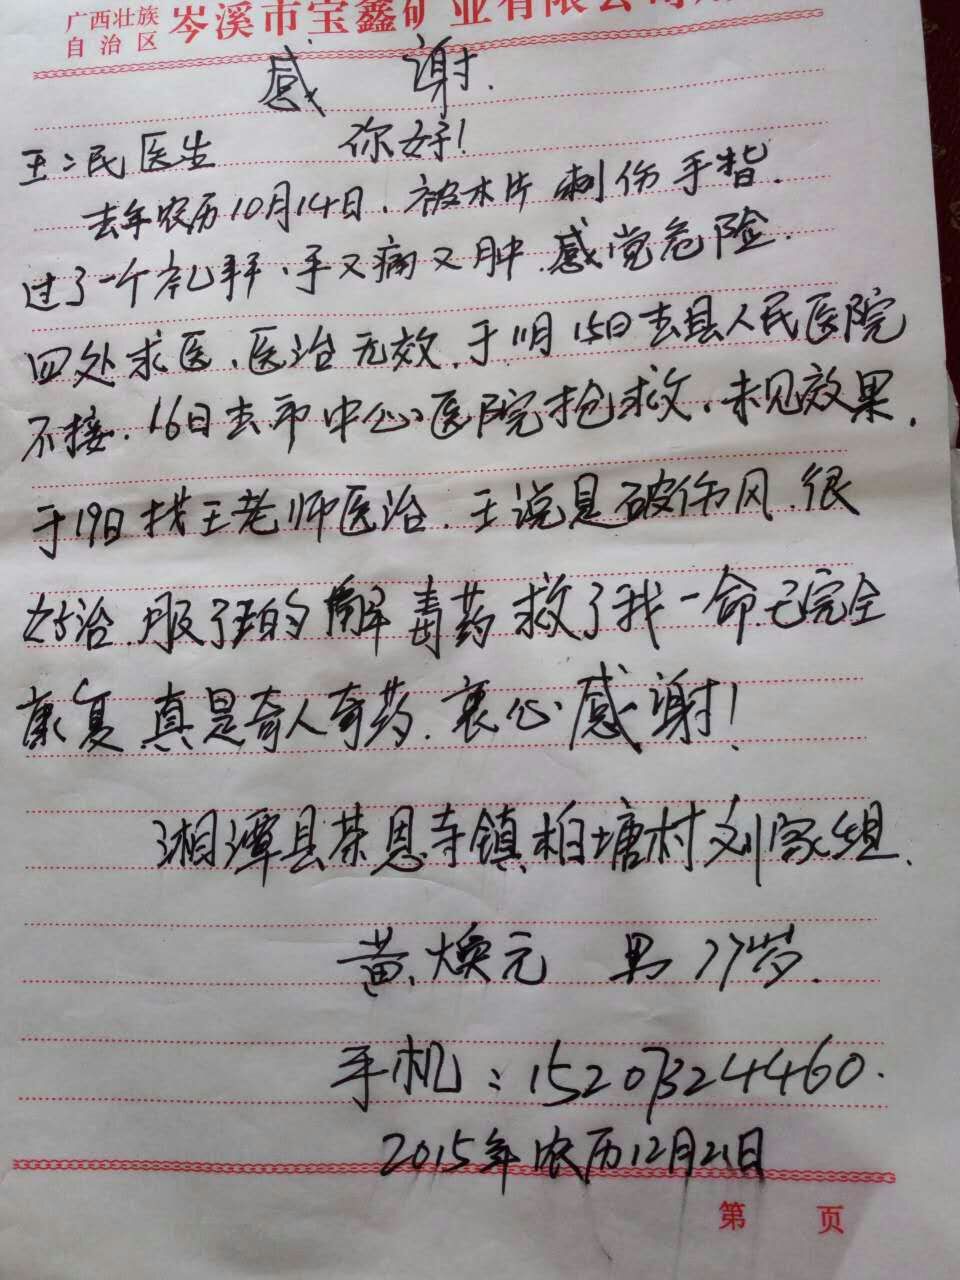 广西壮族
自治区
岑溪市宝鑫矿业有限公司
感 谢.
王二民医生 你好!
去年农历10月14日.被木片刺伤手指.
过了一个礼拜、手又痛又肿.感觉危险.
四处求医、医治无效.于11月15日去县人民医院
不接.16日去市中心医院抢救.未见效果.
于19日找王老师医治.王说是破伤风.很
好治.服了 解毒药救了我一命.已完全
康复.真是奇人奇药.衷心感谢!
湘潭县茶恩寺镇柏塘村刘家组.
黄焕元 男 77岁.
手机:15207324460.
2015年农历12月21日
第 页